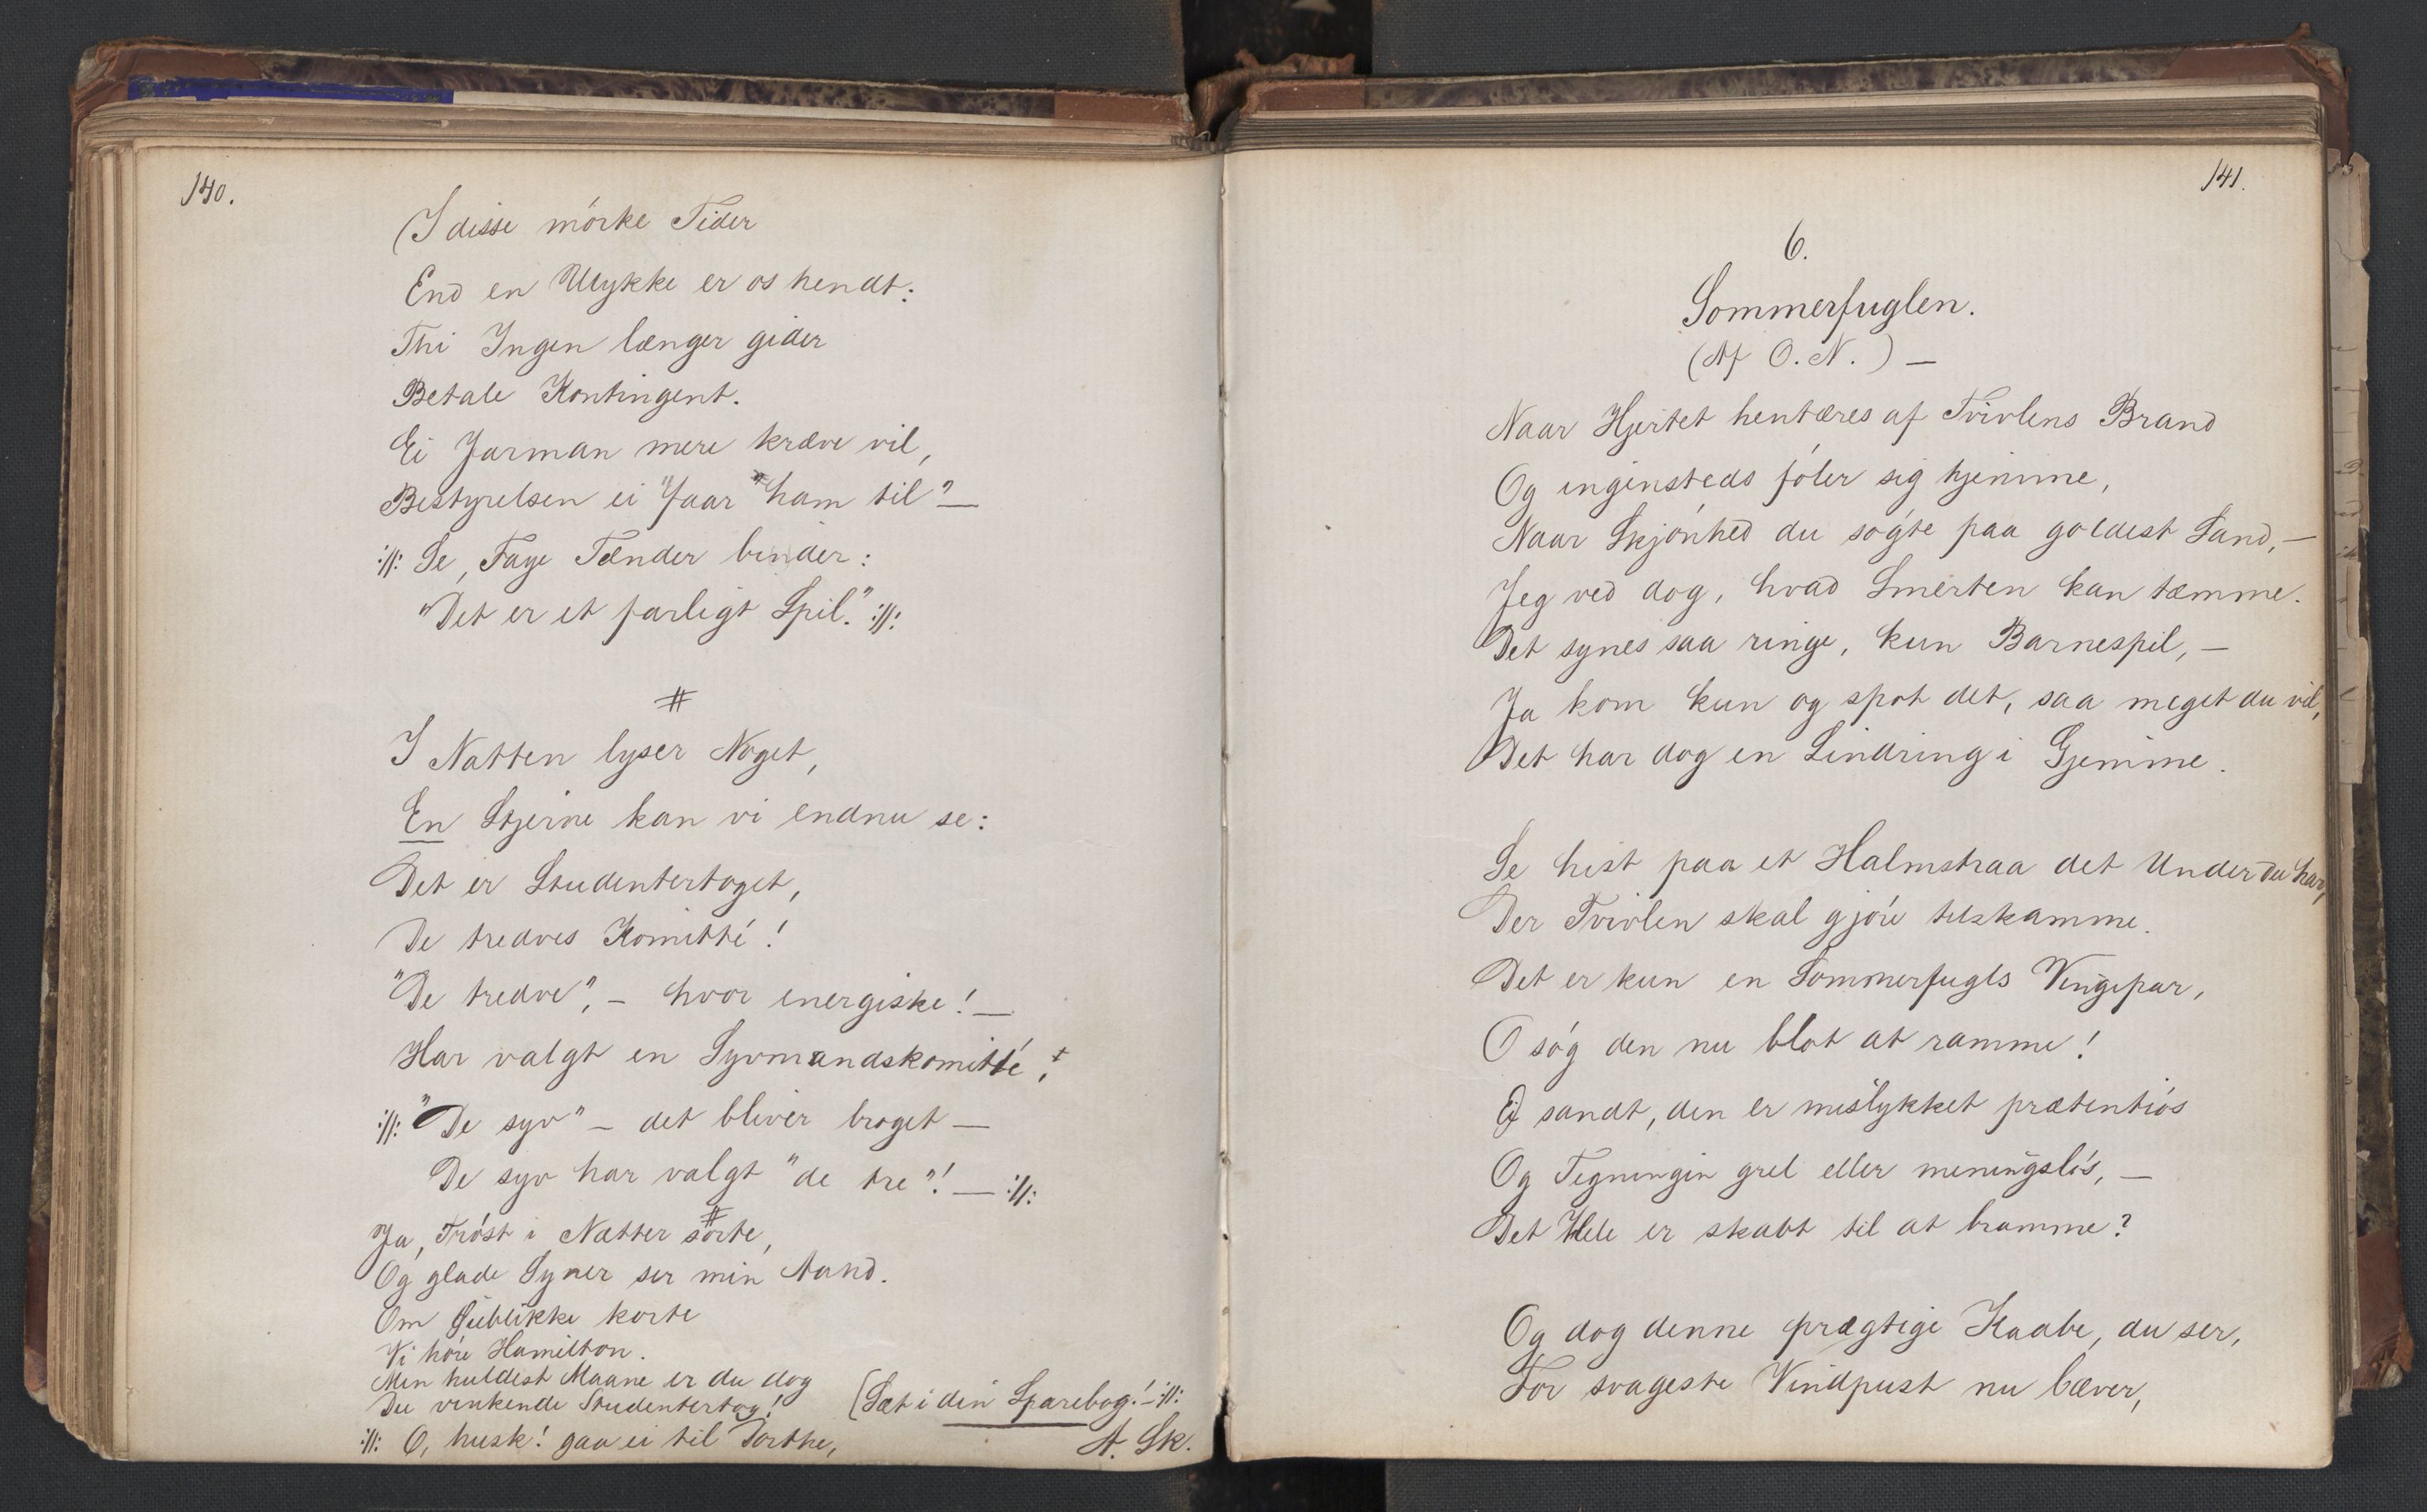 140.
(I disse mórke Tider
End en Ulykke er os hendt:
Thi Ingen længer gider
Betale Kontingent.
Ei Jarman mere kræve vil,
Bestyrelsen ei "faar" ham til" —
://: Se, Faye Tænder binder:
"Det er et farligt Spil." ://:
#
I Natten lyser Noget,
En Stjerne kan vi endnu se:
Det er Studentertoget,
De tredves Komitté!
"De tredve", – hvor energiske! —
Har valgt en Syvmandskomitté;
://: "De syv" – det bliver broget —
De syv har valgt "de tre"! — ://:
#
Ja, Tróst i Nætter sorte,
Og glade Syner ser min Aand.
Om Øieblikke korte
Vi hóre Hamilton.
Men huldest Maane er du dog
Du vinkende Studentertog!
://: O, husk! gaa ei til Dorthe,
[Sæt i din Sparebog! – ://:
A. Sk.
141.
6.
Sommerfuglen.
(Af O. N.) —
Naar Hjertet hentæres af Tvivlens Brand
Og ingensteds fóler sig hjemme,
Naar Skjónhed du sógte paa goldest Sand, —
Jeg ved dog, hvad Smerten kan tæmme.
Det synes saa ringe, kun Barnespil, —
Ja kom kun og spot det, saa meget du vil,
Det har dog en Lindring i Gjemme.
Se hist paa et Halmstraa det Under du har,
Der Tvivlen skal gjóre tilskamme.
Det er kun en Sommerfugls Vingepar,
O sóg den nu blot at ramme!
Ei sandt, den er mislykket prætentiós
Og Tegningen grel eller meningslós, —
Det Hele er skabt til at bramme?
Og dog denne prægtige Kaabe, du ser,
For svageste Vindpust nu bæver,